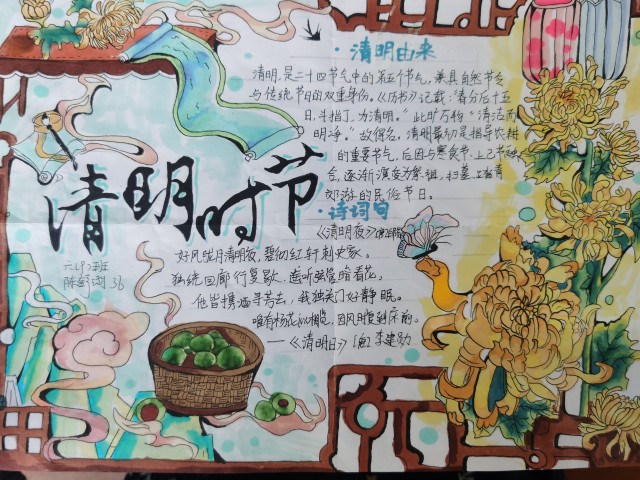 清明时节
六(9)班
36
·清明由来
清明,是二十四节气中的第五个节气,兼具自然节气
与传统节日的双重身份。《历书》记载:“春分后十五
日,斗指丁,为清明。”此时万物“清洁而
明净。”故得名。清明最初是指导农耕
的重要节气,后因与寒食节、上巳节融
合,逐渐演变为祭祖、扫墓、踏青
郊游的民俗节日。
·诗词句
《清明夜》
好风胧月清明夜,碧砌红轩刺史家。
独绕回廊行复歇,遥听弦管暗看花。
他皆携酒寻芳去,我独关门好静眠。
唯有杨花似相觉,因风时复到床前。
——《清明日》 李建勋